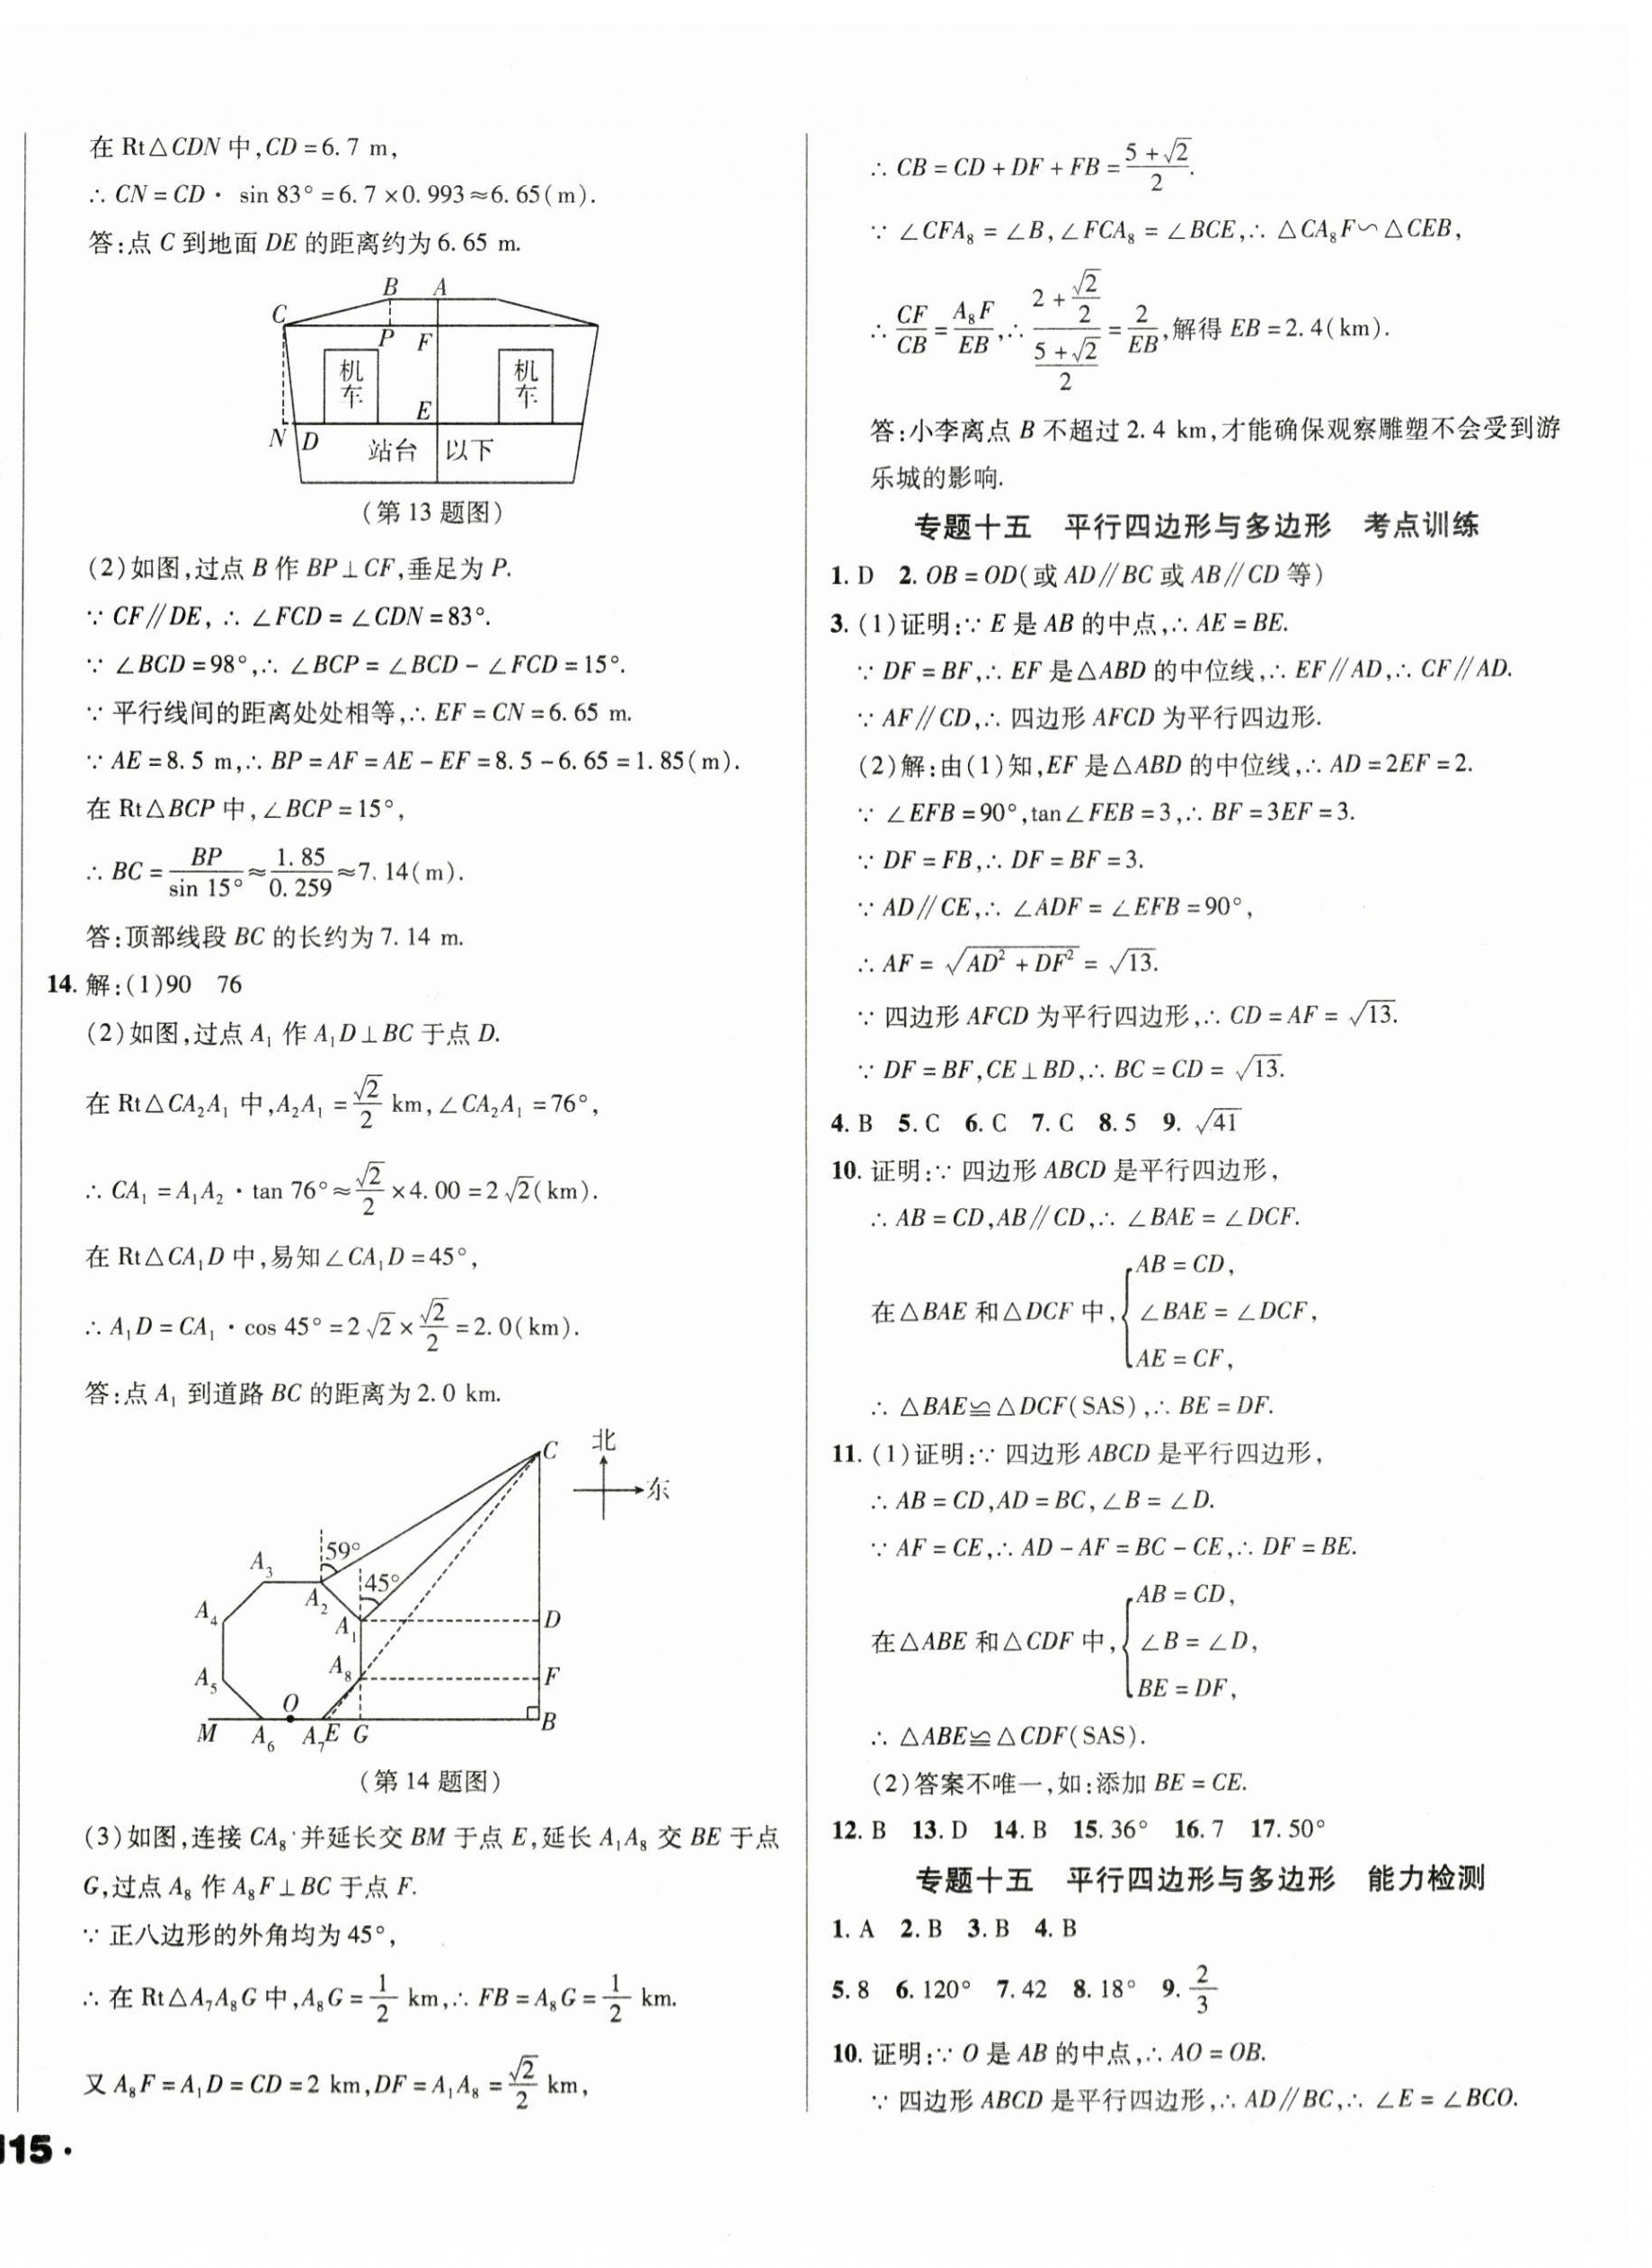 在 Rt△CDN 中,CD=6.7 m,
∴ CN=CD· sin 83°=6.7×0.993≈6.65(m).
答:点 C 到地面 DE 的距离约为 6.65 m.
B A
C
P F
机车 机车
E
N D 站台 以下
(第 13 题图)
(2)如图,过点 B 作 BP⊥CF,垂足为 P.
∵ CF∥DE, ∴ ∠FCD=∠CDN=83°.
∵ ∠BCD=98°,∴ ∠BCP=∠BCD-∠FCD=15°.
∵ 平行线间的距离处处相等,∴ EF=CN=6.65 m.
∵ AE=8.5 m,∴ BP=AF=AE-EF=8.5-6.65=1.85(m).
在 Rt△BCP 中,∠BCP=15°,
∴ BC=BP/sin 15°≈1.85/0.259≈7.14(m).
答:顶部线段 BC 的长约为 7.14 m.
14. 解:(1)90 76
(2)如图,过点 A₁ 作 A₁D⊥BC 于点 D.
在 Rt△CA₂A₁ 中,A₂A₁=√2/2 km,∠CA₂A₁=76°,
∴ CA₁=A₁A₂·tan 76°≈√2/2×4.00=2√2(km).
在 Rt△CA₁D 中,易知∠CA₁D=45°,
∴ A₁D=CA₁·cos 45°=2√2×√2/2=2.0(km).
答:点 A₁ 到道路 BC 的距离为 2.0 km.
C 北
东
59°
A₃ 45°
A₂
A₄ A₁ D
A₈ F
A₅
O
M A₆ A₇ E G B
(第 14 题图)
(3)如图,连接 CA₈ 并延长交 BM 于点 E,延长 A₁A₈ 交 BE 于点
G,过点 A₈ 作 A₈F⊥BC 于点 F.
∵ 正八边形的外角均为 45°,
∴ 在 Rt△A₇A₈G 中,A₈G=1/2 km,∴ FB=A₈G=1/2 km.
又 A₈F=A₁D=CD=2 km,DF=A₁A₈=√2/2 km,
115·
∴ CB=CD+DF+FB=(5+√2)/2.
∵ ∠CFA₈=∠B,∠FCA₈=∠BCE,∴ △CA₈F∽△CEB,
∴ CF/CB=A₈F/EB,∴ (2+√2/2)/((5+√2)/2)=2/EB,解得 EB=2.4(km).
答:小李离点 B 不超过 2.4 km,才能确保观察雕塑不会受到游
乐城的影响.
专题十五 平行四边形与多边形 考点训练
1. D 2. OB=OD(或 AD∥BC 或 AB∥CD 等)
3. (1)证明:∵ E 是 AB 的中点,∴ AE=BE.
∵ DF=BF,∴ EF 是△ABD 的中位线,∴ EF∥AD,∴ CF∥AD.
∵ AF∥CD,∴ 四边形 AFCD 为平行四边形.
(2)解:由(1)知,EF 是△ABD 的中位线,∴ AD=2EF=2.
∵ ∠EFB=90°,tan∠FEB=3,∴ BF=3EF=3.
∵ DF=FB,∴ DF=BF=3.
∵ AD∥CE,∴ ∠ADF=∠EFB=90°,
∴ AF=√(AD²+DF²)=√13.
∵ 四边形 AFCD 为平行四边形,∴ CD=AF=√13.
∵ DF=BF,CE⊥BD,∴ BC=CD=√13.
4. B 5. C 6. C 7. C 8. 5 9. √41
10. 证明:∵ 四边形 ABCD 是平行四边形,
∴ AB=CD,AB∥CD,∴ ∠BAE=∠DCF.
AB=CD,
在△BAE 和△DCF 中,{∠BAE=∠DCF,
AE=CF,
∴ △BAE≌△DCF(SAS),∴ BE=DF.
11. (1)证明:∵ 四边形 ABCD 是平行四边形,
∴ AB=CD,AD=BC,∠B=∠D.
∵ AF=CE,∴ AD-AF=BC-CE,∴ DF=BE.
AB=CD,
在△ABE 和△CDF 中,{∠B=∠D,
BE=DF,
∴ △ABE≌△CDF(SAS).
(2)答案不唯一,如:添加 BE=CE.
12. B 13. D 14. B 15. 36° 16. 7 17. 50°
专题十五 平行四边形与多边形 能力检测
1. A 2. B 3. B 4. B
5. 8 6. 120° 7. 42 8. 18° 9. 2/3
10. 证明:∵ O 是 AB 的中点,∴ AO=OB.
∵ 四边形 ABCD 是平行四边形,∴ AD∥BC,∴ ∠E=∠BCO.